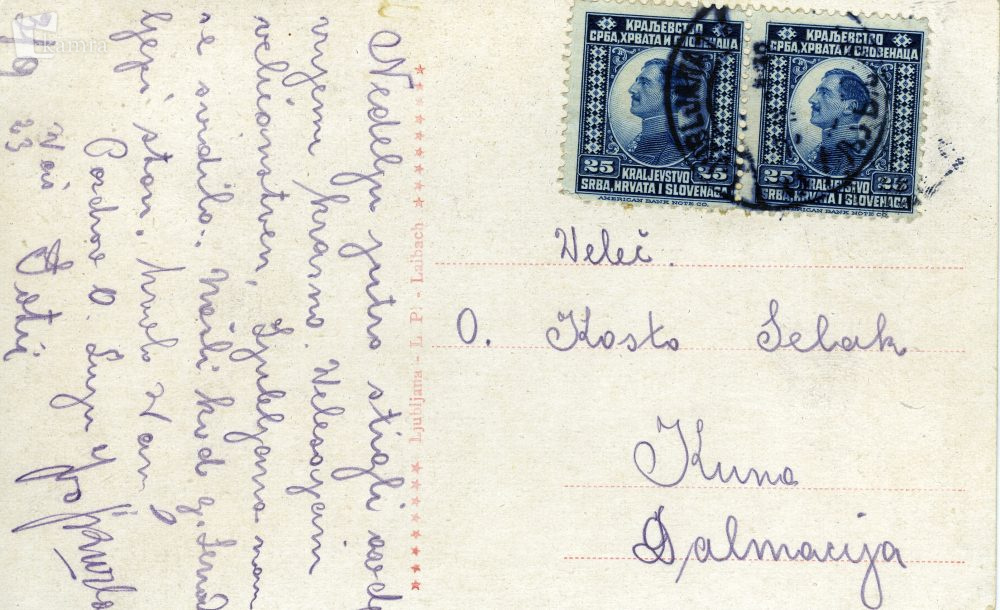 Nedelju jutro stigli ovdje
vrjeme krasno. Velesajam
veličanstven, Ljubljana nam
se svidila. Našli kod g.
ljepi stan, hvala Vam
Pozdrav O.
Vaš
3/9
23
kamra
Ljubljana - L. P. - Laibach
КРАЉЕВСТВО
СРБА, ХРВАТА И СЛОВЕНАЦА
25 25
KRALJEVSTVO
SRBA, HRVATA I SLOVENACA
AMERICAN BANK NOTE CO.
КРАЉЕВСТВО
СРБА, ХРВАТА И СЛОВЕНАЦА
25 25
KRALJEVSTVO
SRBA, HRVATA I SLOVENACA
AMERICAN BANK NOTE CO.
Veleč.
O. Kosto Selak
Kuna
Dalmacija